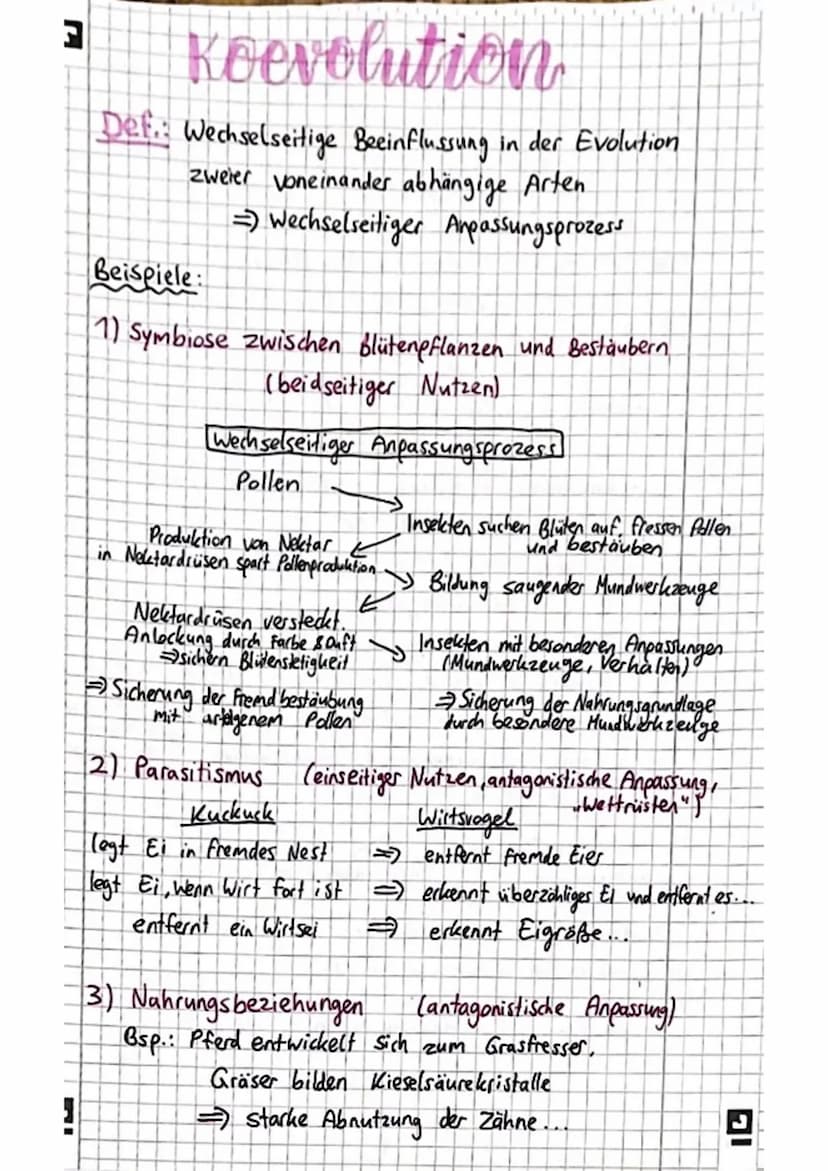 Koevolution
Def.: Wechselseitige Beeinflussung in der Evolution
zweier voneinander abhängige Arten
⇒ Wechselseitiger Anpassungsprozess
Beispiele:
1) Symbiose zwischen Blütenpflanzen und Bestäubern
(beidseitiger Nutzen)
Wechselseitiger Anpassungsprozess
Pollen
Insekten suchen Blüten auf, fressen Pollen
und bestäuben
Produktion von Nektar
in Nektardrüsen spart Pollenproduktion
Bildung saugender Mundwerkzeuge
Nektardrüsen versteckt.
Anlockung durch Farbe & Duft
⇒ sichern Blütenstetigkeit
Insekten mit besonderen Anpassungen
(Mundwerkzeuge, Verhalten)
⇒ Sicherung der Fremdbestäubung
mit arteigenem Pollen
⇒ Sicherung der Nahrungsgrundlage
durch besondere Mundwerkzeuge
2) Parasitismus (einseitiger Nutzen, antagonistische Anpassung,
„Wettrüsten")
Kuckuck Wirtsvogel
legt Ei in fremdes Nest ⇒ entfernt fremde Eier
legt Ei, wenn Wirt fort ist ⇒ erkennt überzähliges Ei und entfernt es...
entfernt ein Wirtsei ⇒ erkennt Eigröße...
3) Nahrungsbeziehungen (antagonistische Anpassung)
Bsp.: Pferd entwickelt sich zum Grasfresser,
Gräser bilden Kieselsäurekristalle
⇒ starke Abnutzung der Zähne...